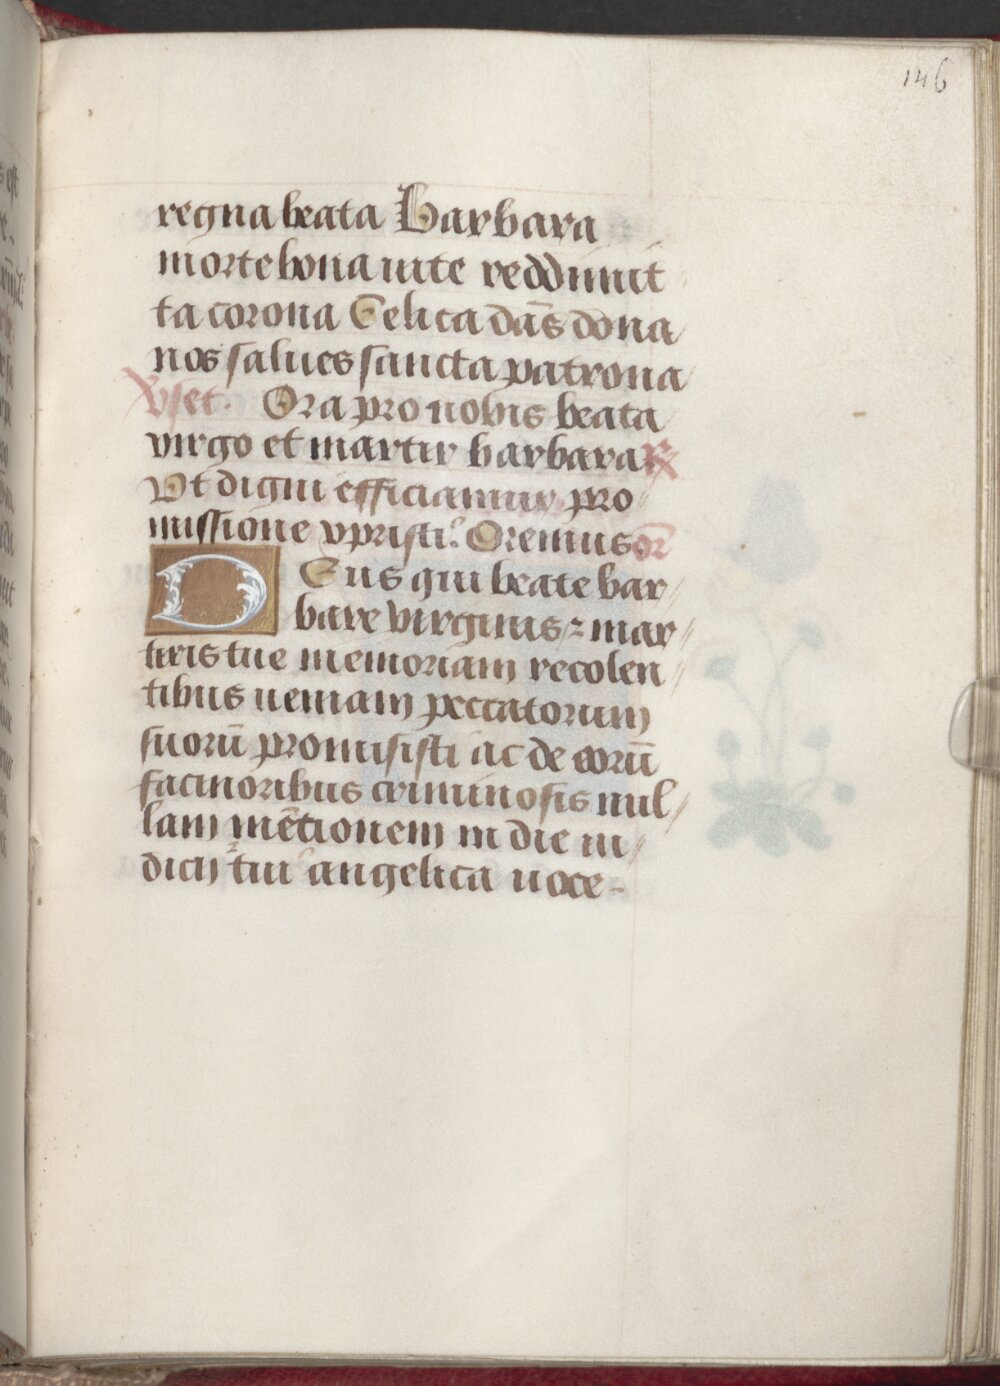 146
regna beata Barbara
morte bona uite reddimit
ta corona Celica dās dona
nos salues sancta patrona
Vset. Ora pro nobis beata
virgo et martir barbara ℟
Ut digni efficiamur pro
missione xpristi. Oremus or̄
Deus qui beate bar
bare virginis ⁊ mar
tiris tue memoriam recolen
tibus ueniam peccatorum
suorū promisisti ac de eorū
facinoribus criminosis nul
lam mētionem in die iu
dicij tui angelica uoce